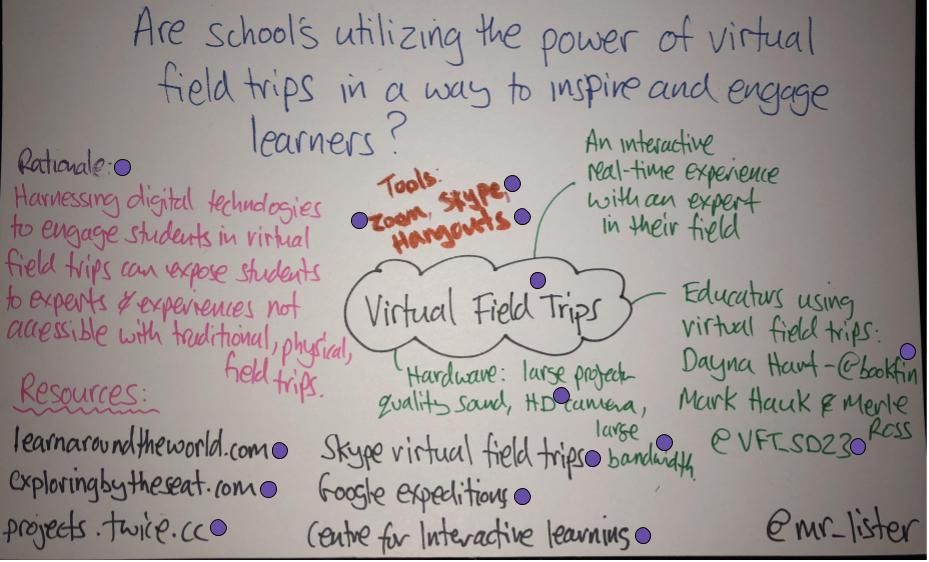 Are schools utilizing the power of virtual
field trips in a way to inspire and engage
learners?
Rationale:
Harnessing digital technologies
to engage students in virtual
field trips can expose students
to experts & experiences not
accessible with traditional, physical,
field trips.
Tools:
Zoom, Skype,
Hangouts
An interactive
real-time experience
with an expert
in their field
Virtual Field Trips
Educators using
virtual field trips:
Dayna Hart - @bookfin
Mark Hauk & Merle
Ross
@VFT_SD23
Hardware: large project
quality sound, HD camera,
large
bandwidth
Resources:
learnaroundtheworld.com
exploringbytheseat.com
projects.twice.cc
Skype virtual field trips
Google expeditions
Centre for Interactive learning
@mr_lister